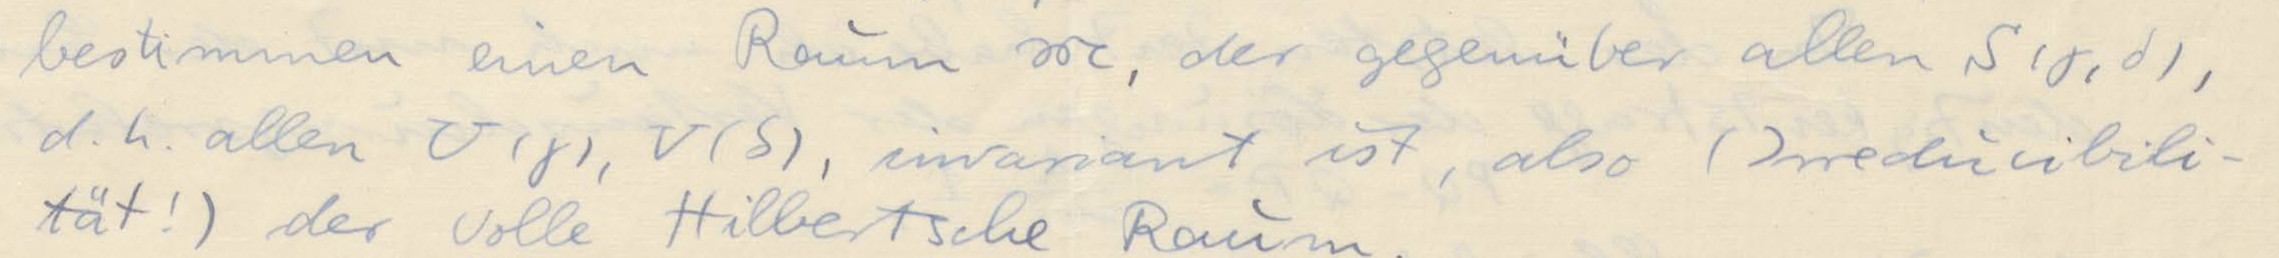 bestimmen einen Raum 𝔐, der gegenüber allen S(γ, δ),
d. h. allen U(γ), V(δ), invariant ist, also (Irreducibili-
tät!) der volle Hilbertsche Raum.